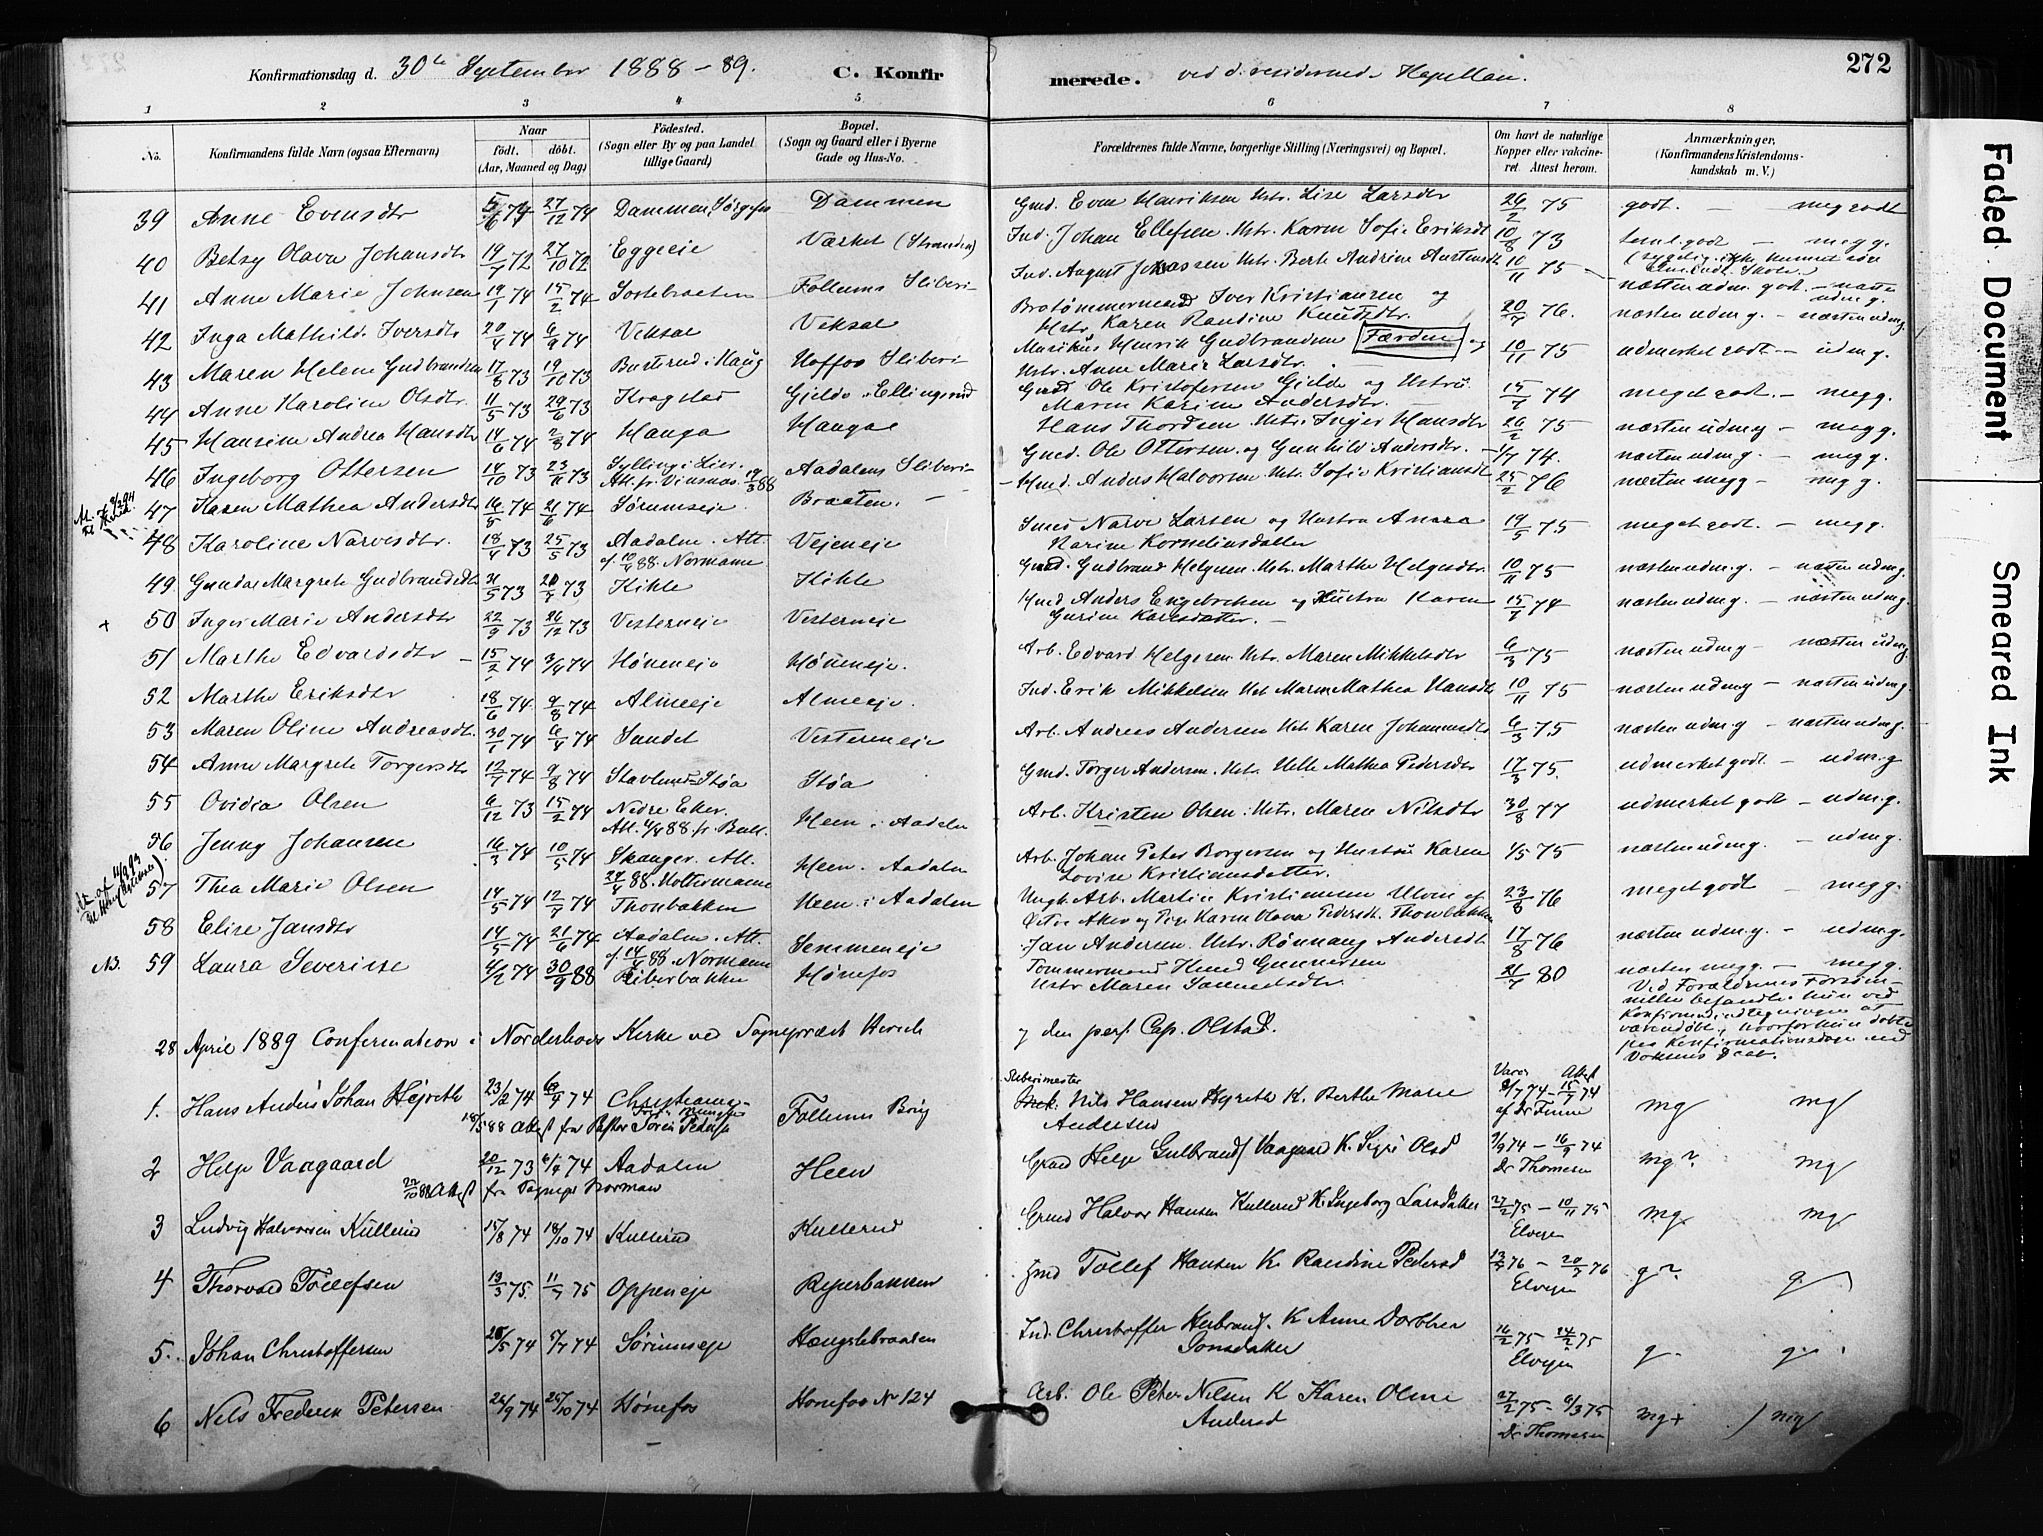 272
Konfirmationsdag d. 30te September 1888-89. C. Konfirmerede. ved d. residerende Kapellan.
1 2 3 4 5 6 7 8
No. Konfirmandens fulde Navn (ogsaa Efternavn) Naar födt. döbt. (Aar, Maaned og Dag) Födested. (Sogn eller By og paa Landet tillige Gaard) Bopæl. (Sogn og Gaard eller i Byerne Gade og Hus-No. Forældrenes fulde Navne, borgerlige Stilling (Næringsvei) og Bopæl. Om havt de naturlige Kopper eller vakcineret Attest herom. Anmærkninger, (Konfirmandens Kristendomskundskab m. V.)
39 Anne Evensdtr 27/12 74 Dammen Dammen Gmd. Even Henriksen Hstr. Lise Larsdtr 26/2 75 godt. — meg godt
40 Betsy Olava Johansdtr 19/7 72 27/10 72 Eggeeie Værket (Stranden) Ind. Johan Ellefsen Hstr. Karen Sofie Eriksdt 10/8 73 teml. godt — meg g.
41 Anne Marie Johnsen 19/1 74 15/2 74 Sortebraaten Follums Sliberi Ind. August Hstr. Berte Andrine 10/11 75 næsten udm. godt. — næsten udm g.
42 Inga Mathilde Iversdtr 20/4 74 6/9 74 Veksal Veksal Brotømmermand Iver Kristiansen og Hstr. Karen Randine Knudsdtr. 20/7 76. næsten udm g. — næsten udmg
43 Maren Helene Gudbrandsen 17/8 73 19/10 73 Busterud i Haug Hoffos Sliberi Musikus Henrik Gudbrandsen Færden og Hstr. Anne Marie Larsdtr. 10/11 75 udmerket godt — udm g.
44 Anne Karoline Olsdtr. 11/5 73 29/6 73 Kragstad Gjelde i Ellingsrud Gmd Ole Kristofersen Gjelde og Hustru Maren Karine Andersdtr. 15/7 74 meget godt. — meg g.
45 Hansine Andrea Hansdtr 14/6 74 2/8 74 Hanga Hangal Hans Thordsen Hstr. Inger Hansdtr 26/2 75 næsten udm g — meg g.
46 Ingeborg Ottersen 14/10 73 23/11 73 Sylling i Lier. Att. fr. Vinsnes. 19/3 88 Aadalens Sliberi Gmd. Ole Ottersen og Gunhild Andersdtr. 1/7 74. næsten udm g. — meg g.
47 Karen Mathea Andersdtr 16/5 74 21/6 74 Sørumseie Braaten. Hmd. Anders Halvorsen Hstr. Sofie Kristiansdt 25/2 76 næsten meg g — meg g.
48 Karoline Narvesdtr. 18/4 73 25/5 73 Aadalen. Att. af. 10/9 88. Normann Vejeneje Smed Narve Larsen og Hustru Karine Kornelinsdatter 19/5 75 meget godt. — meg g.
49 Gunda Margrete Gudbrandsdtr 31/5 73 73 Kihle Kihle Gmd. Gudbrand Helgesen Hstr. Marthe Helgesdtr. 10/11 75 næsten udm g. — næsten udm g.
+ 50 Inger Marie Andersdtr 22/9 73 26/12 73 Vesterneje Vesterneje Hmd. Anders Engebretsen og Hustru Karen Gurine 15/7 74 næsten udm g. — næsten udm g.
51 Marthe Edvardsdtr 15/2 74 3/4 74 Høneneje Høneneje. Arb. Edvard Helgesen Hstr. Maren Mikkelsdtr 6/3 75 næsten udm g — næsten udm g.
52 Marthe Eriksdtr 18/6 74 9/8 74 Almeeje Almeeje. Ind. Erik Mikkelsen Hst Maren Mathea Hansdt 10/11 75 næsten udm g — næsten udm g.
53 Maren Oline Andreasdt. 30/1 74 6/4 74 Sandet Vesterneje Arb. Andreas Andersen Hstr. Karen Johannesdtr 6/3 75 næsten udm. g — næsten udm g.
54 Anne Margrete Torgersdtr 12/7 74 9/8 74 Støa Støa Gmd. Torger Andersen. Hstr. Helle Mathea Pedersdtr 17/3 75. udmerket godt. — udm. g
55 Ovidia Olsen 6/12 73 15/2 74 Nedre Eker. Att. 4/4 88. fr. Bull. Heen i Aadalen Arb. Kristen Olsen. Hstr. Maren Nilsdtr 30/8 77 udmerket godt — udm. g.
56 Jenny Johansen 16/3 74 10/5 74 Skauger. Att. 22/4 88. Heen i Aadalen Arb. Johan Peter Borgersen og Hustru Karen Lovise Kristiansdatter. 1/5 75 næsten udm g. — udm g.
57 Thea Marie Olsen 14/5 74 12/7 74 Thonbakken Heen i Aadalen Ungk. Arb. Martin Kristiansen Ulven af Østre Aker og Pige Karen Olava Pedersdt. Thonbakken 23/8 76 meget godt — meg g.
58 Elise Jansdtr 14/5 74 21/6 74 Aadalen. Att. af 14/4 88. Normann Semmeneje Jan Andersen. Hstr. Rønnaug Andersdt. 17/8 76 næsten udm g. — udm g.
NB. 59 Laura Severine 4/2 74 30/9 88 Hønefos Tømmermand Knud Gunnersen Hstr Maren Samuelsdtr. 21/7 80 næsten meg g. — meg g.
Ved Forældrenes Forsømmelse befandtes hun ved Konfirmandindtegningen at være udøbt, hvorfor hun døbtes paa Konfirmationsdagen med Voksnes Daab.
28 April 1889 Confirmation i Norderhovs Kirke ved Sognepræst Hersleb og den pers. Cap. Olstad.
1. Hans Anders Johan 23/2 74 74 Christiania 18/5 88 Attest fra Pastor Søren Pedersen Follums Brug Sliberimester Nils Hansen K. Berthe Marie Andersen Vacc Attest 8/7 74 – 15/7 74 af Dr mg mg
2 Helge Vaagaard 20/12 73 6/4 74 Aadalen 22/10 88 Attest fra Sognepr Norman Heen Gmd Helge Gulbrands Vaagaard K. Sigri Olsd 9/9 74 – 16/9 74 Dr Thomesen mg? mg
3 Ludvig Halvorsen Kullerud 15/8 74 18/10 74 Kullerud Kullerud Gmd Halvor Hansen Kullerud K. Ingeborg Larsdatter 27/2 75 – 10/11 75 Elvejen mg mg
4 Thorvald Tollefsen 13/3 75. 11/7 75 Oppeneje Reperbakken Gmd Tollef Hansen K. Randine Pedersd 76 – 20/7 76 Elvejen g? g.
5. Johan Christoffersen 74 5/7 74 Sørumseje Hængslebraaten Ind. Christoffer Herbrands. K Anne Dorthea Jonsdatter 16/2 75 – 24/2 75 Elvejen g. g.
6 Nels Frederik Petersen 26/9 74 25/10 74 Hønefos Hønefos No 124 Arb. Ole Peter Nilsen K Karen Oline Andersd 27/2 75 – 6/3 75 Dr Thomesen mg + / mg
Faded Document
Smeared Ink